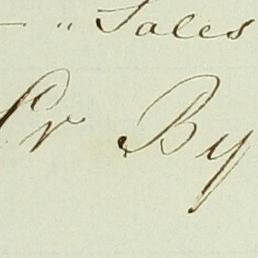 — " Sales
Cr By